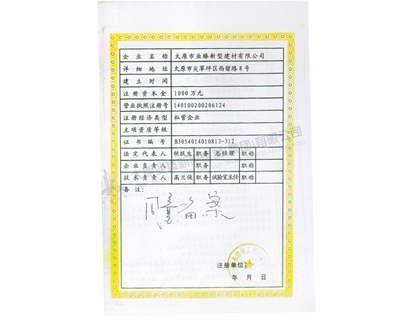 企业名称 太原市业臻新型建材有限公司
详细地址 太原市尖草坪区西留路8号
建立时间
注册资本金 1000万元
营业执照注册号 140100200206124
注册经济类型 私营企业
主项资质等级
证书编号 B3054014010813-312
法定代表人 职务 总经理 职称
企业负责人 职务 职称
技术负责人 高兰俊 职务 试验室主任 职称
备注：
注册单位：
年 月 日